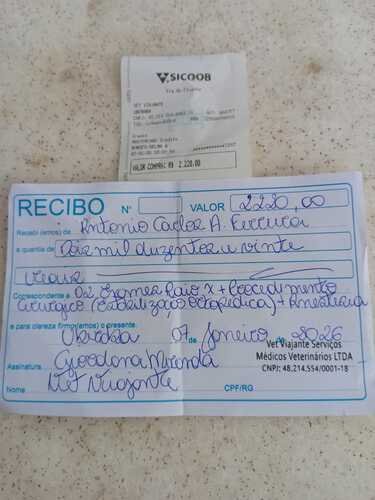 SICOOB
Via do Cliente
VET VIAJANTE
VALOR COMPRA: R$ 2.220,00
RECIBO Nº VALOR 2220,00
Recebi (emos) de Antonio Carlos A.
a quantia de Dois mil duzentos e vinte
reais
Correspondente a 02 Exames Raio X + Procedimento
Cirurgico (Estabilização Ortopedica) + Anestesia
e para clareza firmo(amos) o presente.
07 de Janeiro de 2026
Assinatura Miranda
Vet Viajante
Nome CPF/RG
Vet Viajante Serviços
Médicos Veterinários LTDA
CNPJ: 48.214.554/0001-18